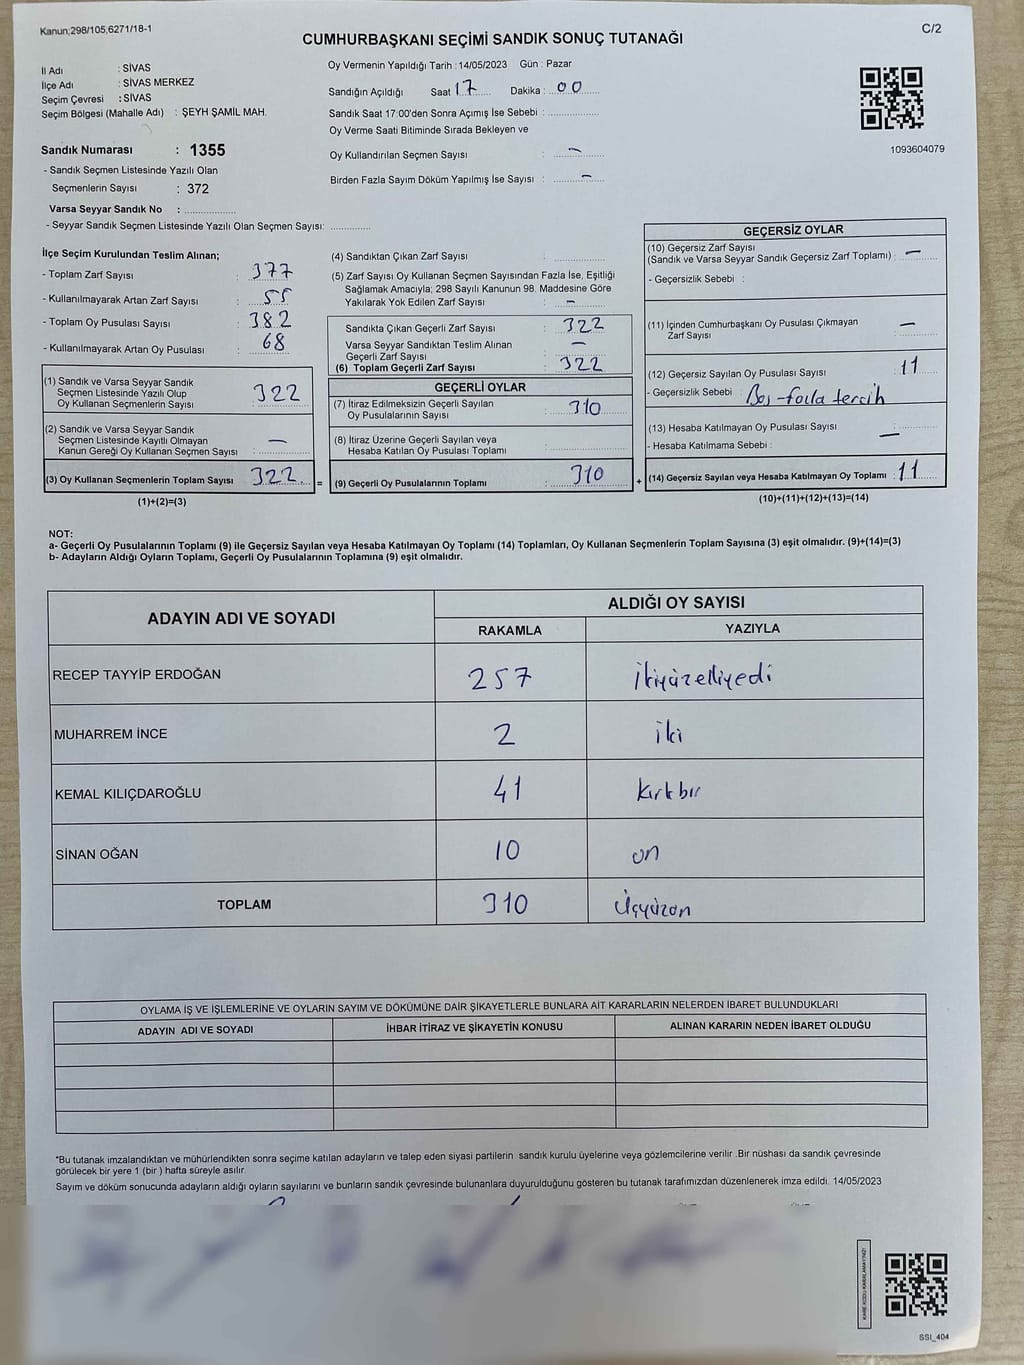 Kanun;298/105,6271/18-1
C/2
CUMHURBAŞKANI SEÇİMİ SANDIK SONUÇ TUTANAĞI
İl Adı : SİVAS
İlçe Adı : SİVAS MERKEZ
Seçim Çevresi : SİVAS
Seçim Bölgesi (Mahalle Adı) : ŞEYH ŞAMİL MAH.
Sandık Numarası : 1355
- Sandık Seçmen Listesinde Yazılı Olan
Seçmenlerin Sayısı : 372
Varsa Seyyar Sandık No : ................
- Seyyar Sandık Seçmen Listesinde Yazılı Olan Seçmen Sayısı: .............
Oy Vermenin Yapıldığı Tarih : 14/05/2023 Gün : Pazar
Sandığın Açıldığı Saat 17 Dakika : 00
Sandık Saat 17:00'den Sonra Açımış İse Sebebi : ................
Oy Verme Saati Bitiminde Sırada Bekleyen ve
Oy Kullandırılan Seçmen Sayısı : -
Birden Fazla Sayım Döküm Yapılmış İse Sayısı : -
1093604079
İlçe Seçim Kurulundan Teslim Alınan;
- Toplam Zarf Sayısı : 377
- Kullanılmayarak Artan Zarf Sayısı : 55
- Toplam Oy Pusulası Sayısı : 382
- Kullanılmayarak Artan Oy Pusulası : 68
(1) Sandık ve Varsa Seyyar Sandık
Seçmen Listesinde Yazılı Olup
Oy Kullanan Seçmenlerin Sayısı : 322
(2) Sandık ve Varsa Seyyar Sandık
Seçmen Listesinde Kayıtlı Olmayan
Kanun Gereği Oy Kullanan Seçmen Sayısı : -
(3) Oy Kullanan Seçmenlerin Toplam Sayısı 322
(1)+(2)=(3)
=
(4) Sandıktan Çıkan Zarf Sayısı : ................
(5) Zarf Sayısı Oy Kullanan Seçmen Sayısından Fazla İse, Eşitliği
Sağlamak Amacıyla; 298 Sayılı Kanunun 98. Maddesine Göre
Yakılarak Yok Edilen Zarf Sayısı : -
Sandıkta Çıkan Geçerli Zarf Sayısı : 322
Varsa Seyyar Sandıktan Teslim Alınan
Geçerli Zarf Sayısı : -
(6) Toplam Geçerli Zarf Sayısı : 322
GEÇERLİ OYLAR
(7) İtiraz Edilmeksizin Geçerli Sayılan
Oy Pusulalarının Sayısı : 310
(8) İtiraz Üzerine Geçerli Sayılan veya
Hesaba Katılan Oy Pusulası Toplamı : ................
(9) Geçerli Oy Pusulalarının Toplamı : 310
+
GEÇERSİZ OYLAR
(10) Geçersiz Zarf Sayısı
(Sandık ve Varsa Seyyar Sandık Geçersiz Zarf Toplamı) : -
- Geçersizlik Sebebi :
(11) İçinden Cumhurbaşkanı Oy Pusulası Çıkmayan
Zarf Sayısı : -
(12) Geçersiz Sayılan Oy Pusulası Sayısı : 11
- Geçersizlik Sebebi : Boş-fazla tercih
(13) Hesaba Katılmayan Oy Pusulası Sayısı : -
- Hesaba Katılmama Sebebi :
(14) Geçersiz Sayılan veya Hesaba Katılmayan Oy Toplamı : 11
(10)+(11)+(12)+(13)=(14)
NOT:
a- Geçerli Oy Pusulalarının Toplamı (9) ile Geçersiz Sayılan veya Hesaba Katılmayan Oy Toplamı (14) Toplamları, Oy Kullanan Seçmenlerin Toplam Sayısına (3) eşit olmalıdır. (9)+(14)=(3)
b- Adayların Aldığı Oyların Toplamı, Geçerli Oy Pusulalarının Toplamına (9) eşit olmalıdır.
ADAYIN ADI VE SOYADI
ALDIĞI OY SAYISI
RAKAMLA YAZIYLA
RECEP TAYYİP ERDOĞAN 257 ikiyüzelliyedi
MUHARREM İNCE 2 iki
KEMAL KILIÇDAROĞLU 41 kırkbir
SİNAN OĞAN 10 on
TOPLAM 310 Üçyüzon
OYLAMA İŞ VE İŞLEMLERİNE VE OYLARIN SAYIM VE DÖKÜMÜNE DAİR ŞİKAYETLERLE BUNLARA AİT KARARLARIN NELERDEN İBARET BULUNDUKLARI
ADAYIN ADI VE SOYADI İHBAR İTİRAZ VE ŞİKAYETİN KONUSU ALINAN KARARIN NEDEN İBARET OLDUĞU
*Bu tutanak imzalandıktan ve mühürlendikten sonra seçime katılan adayların ve talep eden siyasi partilerin sandık kurulu üyelerine veya gözlemcilerine verilir .Bir nüshası da sandık çevresinde
görülecek bir yere 1 (bir ) hafta süreyle asılır.
Sayım ve döküm sonucunda adayların aldığı oyların sayılarını ve bunların sandık çevresinde bulunanlara duyurulduğunu gösteren bu tutanak tarafımızdan düzenlenerek imza edildi. 14/05/2023
KARE KODU KARALAMAYINIZ!
SSI_404